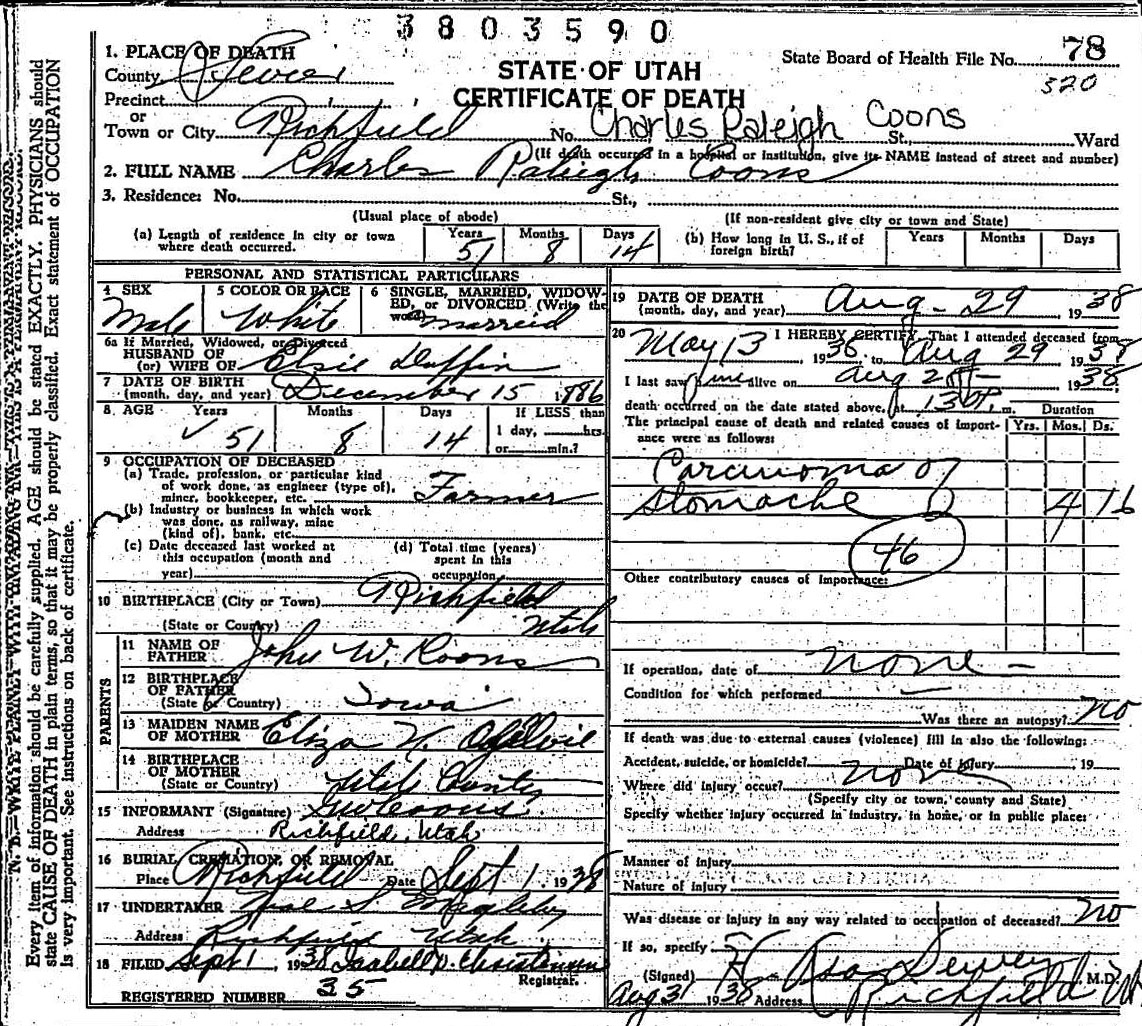 3803590
1. PLACE OF DEATH
County Sevier
State Board of Health File No. 78
320
STATE OF UTAH
CERTIFICATE OF DEATH
Precinct
or
Town or City Richfield No. Charles Raleigh Coons St., Ward
(If death occurred in a hospital or institution, give its NAME instead of street and number)
2. FULL NAME Charles Raleigh Coons
3. Residence: No. St.,
(Usual place of abode) (If non-resident give city or town and State)
(a) Length of residence in city or town where death occurred. Years 51 Months 8 Days 14
(b) How long in U. S., if of foreign birth? Years Months Days
PERSONAL AND STATISTICAL PARTICULARS
4 SEX Male
5 COLOR OR RACE White
6 SINGLE, MARRIED, WIDOWED, or DIVORCED (Write the word) Marreid
6a If Married, Widowed, or Divorced
HUSBAND OF
(or) WIFE OF Elsie Duffin
7 DATE OF BIRTH
(month, day, and year) December 15 1886
8 AGE Years Months Days If LESS than
51 8 14 1 day, hrs.
or min.?
9 OCCUPATION OF DECEASED
(a) Trade, profession, or particular kind
of work done, as engineer (type of),
miner, bookkeeper, etc. Farmer
(b) Industry or business in which work
was done, as railway, mine
(kind of), bank, etc.
(c) Date deceased last worked at
this occupation (month and
year)
(d) Total time (years)
spent in this
occupation
10 BIRTHPLACE (City or Town) Richfield
(State or Country) Utah
PARENTS
11 NAME OF
FATHER John W. Coons
12 BIRTHPLACE
OF FATHER
(State or Country) Iowa
13 MAIDEN NAME
OF MOTHER Eliza N. Ogilvie
14 BIRTHPLACE
OF MOTHER
(State or Country) Utah County
15 INFORMANT (Signature) Coons
Address Richfield, Utah
16 BURIAL, CREMATION, OR REMOVAL
Place Richfield Date Sept 1, 1938
17 UNDERTAKER
Address Richfield Utah
18 FILED Sept 1, 1938 Isabell D. Christensen
Registrar.
REGISTERED NUMBER 35
19 DATE OF DEATH
(month, day, and year) Aug - 29 1938
20 I HEREBY CERTIFY, That I attended deceased from
May 13, 1936 to Aug 29 1938
I last saw him alive on Aug 1938
death occurred on the date stated above, at m. Duration
The principal cause of death and related causes of importance were as follows: Yrs. Mos. Ds.
Carcinoma of
Stomache 4 16
46
Other contributory causes of importance:
If operation, date of none -
Condition for which performed
Was there an autopsy? no
If death was due to external causes (violence) fill in also the following:
Accident, suicide, or homicide? Date of injury 19
none
Where did injury occur?
(Specify city or town, county and State)
Specify whether injury occurred in industry, in home, or in public place:
Manner of injury
Nature of injury
Was disease or injury in any way related to occupation of deceased? no
If so, specify
(Signed) Dewey, M.D.
Aug 31 1938 Address Richfield Ut
N. B.—WRITE PLAINLY WITH UNFADING INK—THIS IS A PERMANENT RECORD.
Every item of information should be carefully supplied. AGE should be stated EXACTLY. PHYSICIANS should
state CAUSE OF DEATH in plain terms, so that it may be properly classified. Exact statement of OCCUPATION
is very important. See instructions on back of certificate.